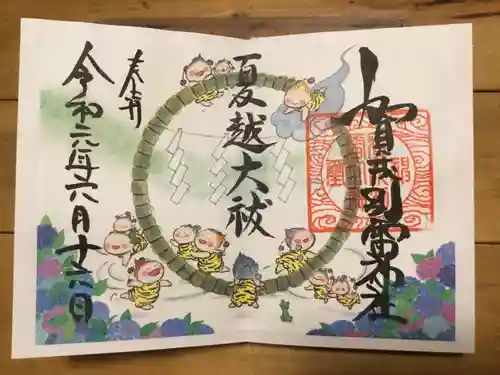 賀茂別雷神社
夏越大祓
奉拝
令和元年六月十六日